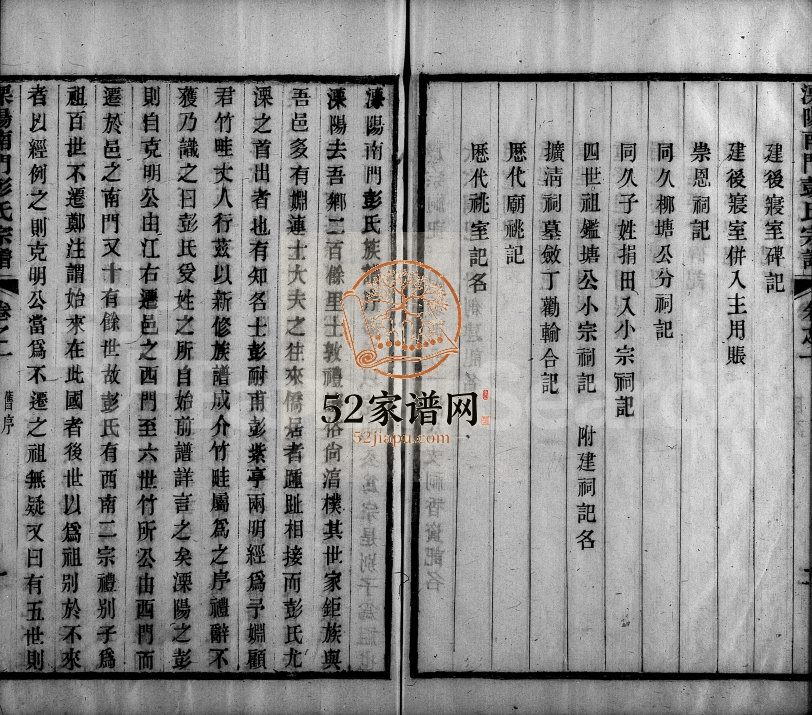 溧陽南門彭氏宗譜
建後寢室碑記
建後寢室併入主用賬
崇恩祠記
同久柳塘公分祠記
同久子姓捐田入小宗祠記
四世祖鑑塘公小宗祠記 附建祠記名
擴淸祠墓斂丁勸輸合記
歷代廟祧記
歷代祧室記名
溧陽南門彭氏族
溧陽去吾鄉二百餘里士敦禮 俗尙湻樸其世家鉅族與
吾邑多有姻連士大夫之往來僑居者踵趾相接而彭氏尤
溧之首出者也有知名士彭耐甫彭紫亭兩明經爲予姻顧
君竹畦丈人行茲以新修族譜成介竹畦屬爲之序禮辭不
獲乃識之曰彭氏受姓之所自始前譜詳言之矣溧陽之彭
則自克明公由江右遷邑之西門至六世竹所公由西門而
遷於邑之南門又十有餘世故彭氏有西南二宗禮別子爲
祖百世不遷鄭注謂始來在此國者後世以爲祖別於不來
者以經例之則克明公當爲不遷之祖無疑又曰有五世則
溧陽南門彭氏宗譜
卷之二
舊序
52家谱网
52jiapu.com